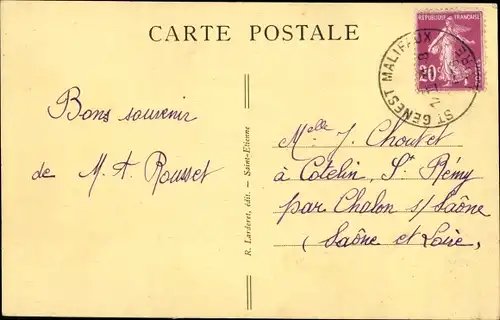 CARTE POSTALE
RÉPUBLIQUE FRANÇAISE
20c
ST GENEST MALIFAUX
Bons souvenir
de M. A. Rousset
R. Larderet, édit. - Saint-Etienne
Melle J. Chouvet
à Cotelin, St Rémy
par Chalon s/ Saône
(Saône et Loire)